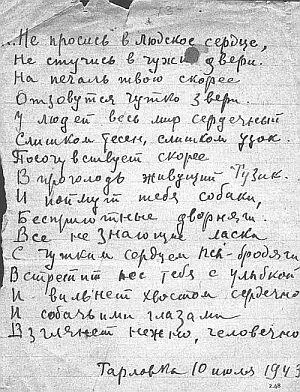 ...Не просись в людское сердце,
Не стучись в чужие двери.
На печаль твою скорее
Отзовутся чутко звери.
У людей весь мир сердечный
Слишком тесен, слишком узок.
Посочувствует скорее
В проголодь живущий Тузик.
И поймут тебя собаки,
Бесприютные дворняги.
Все не знающие ласки
С чутким сердцем псы-бродяги
Встретит пес тебя с улыбкой
И вильнет хвостом сердечно
И собачьими глазами
Взглянет нежно, человечно
Тарловка 10 июля 1943